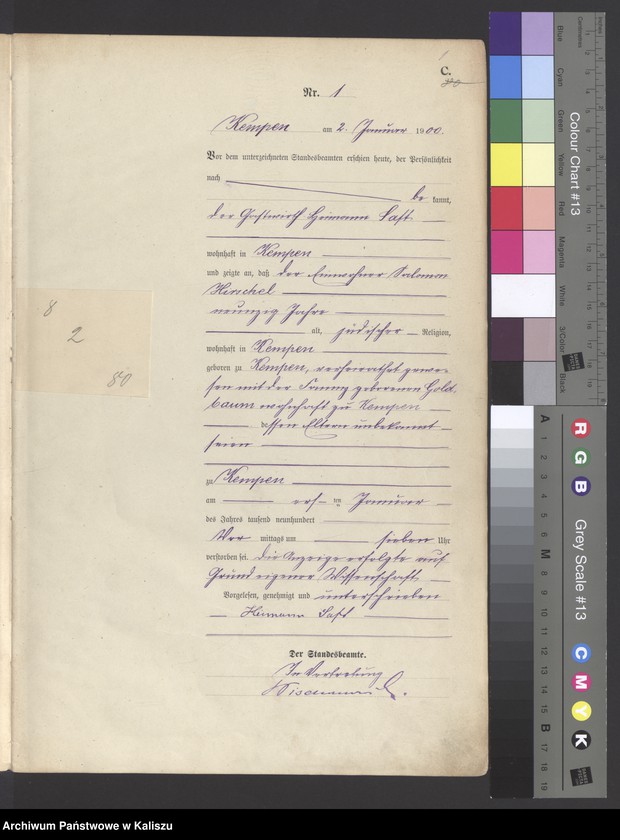 C.
80
Nr. 1
Kempen am 2. Januar 1900.
Vor dem unterzeichneten Standesbeamten erschien heute, der Persönlichkeit
nach
be kannt,
der Gastwirth Hermann Saft
wohnhaft in Kempen
und zeigte an, daß der Einwohner Salomon
Herschel
neunzig Jahre
alt, jüdischer Religion,
wohnhaft in Kempen
geboren zu Kempen, verheirathet gewe-
sen mit der Fanny geborenen Gold-
baum wohnhaft zu Kempen
dessen Eltern unbekannt
seien
zu Kempen
am ersten Januar
des Jahres tausend neunhundert
Vor mittags um sieben Uhr
verstorben sei. Die Anzeige erfolgte auf
Grund eigener Wissenschaft.
Vorgelesen, genehmigt und unterschrieben
Hermann Saft
Der Standesbeamte.
In Vertretung
8
2
80
Colour Chart #13
Blue
Cyan
Green
Yellow
Red
Magenta
White
3/Color
Black
Centimetres
Grey Scale #13
R
G
B
C
M
Y
K
A
1
2
3
4
5
6
M
8
9
10
11
12
13
14
15
B
17
18
19
Archiwum Państwowe w Kaliszu